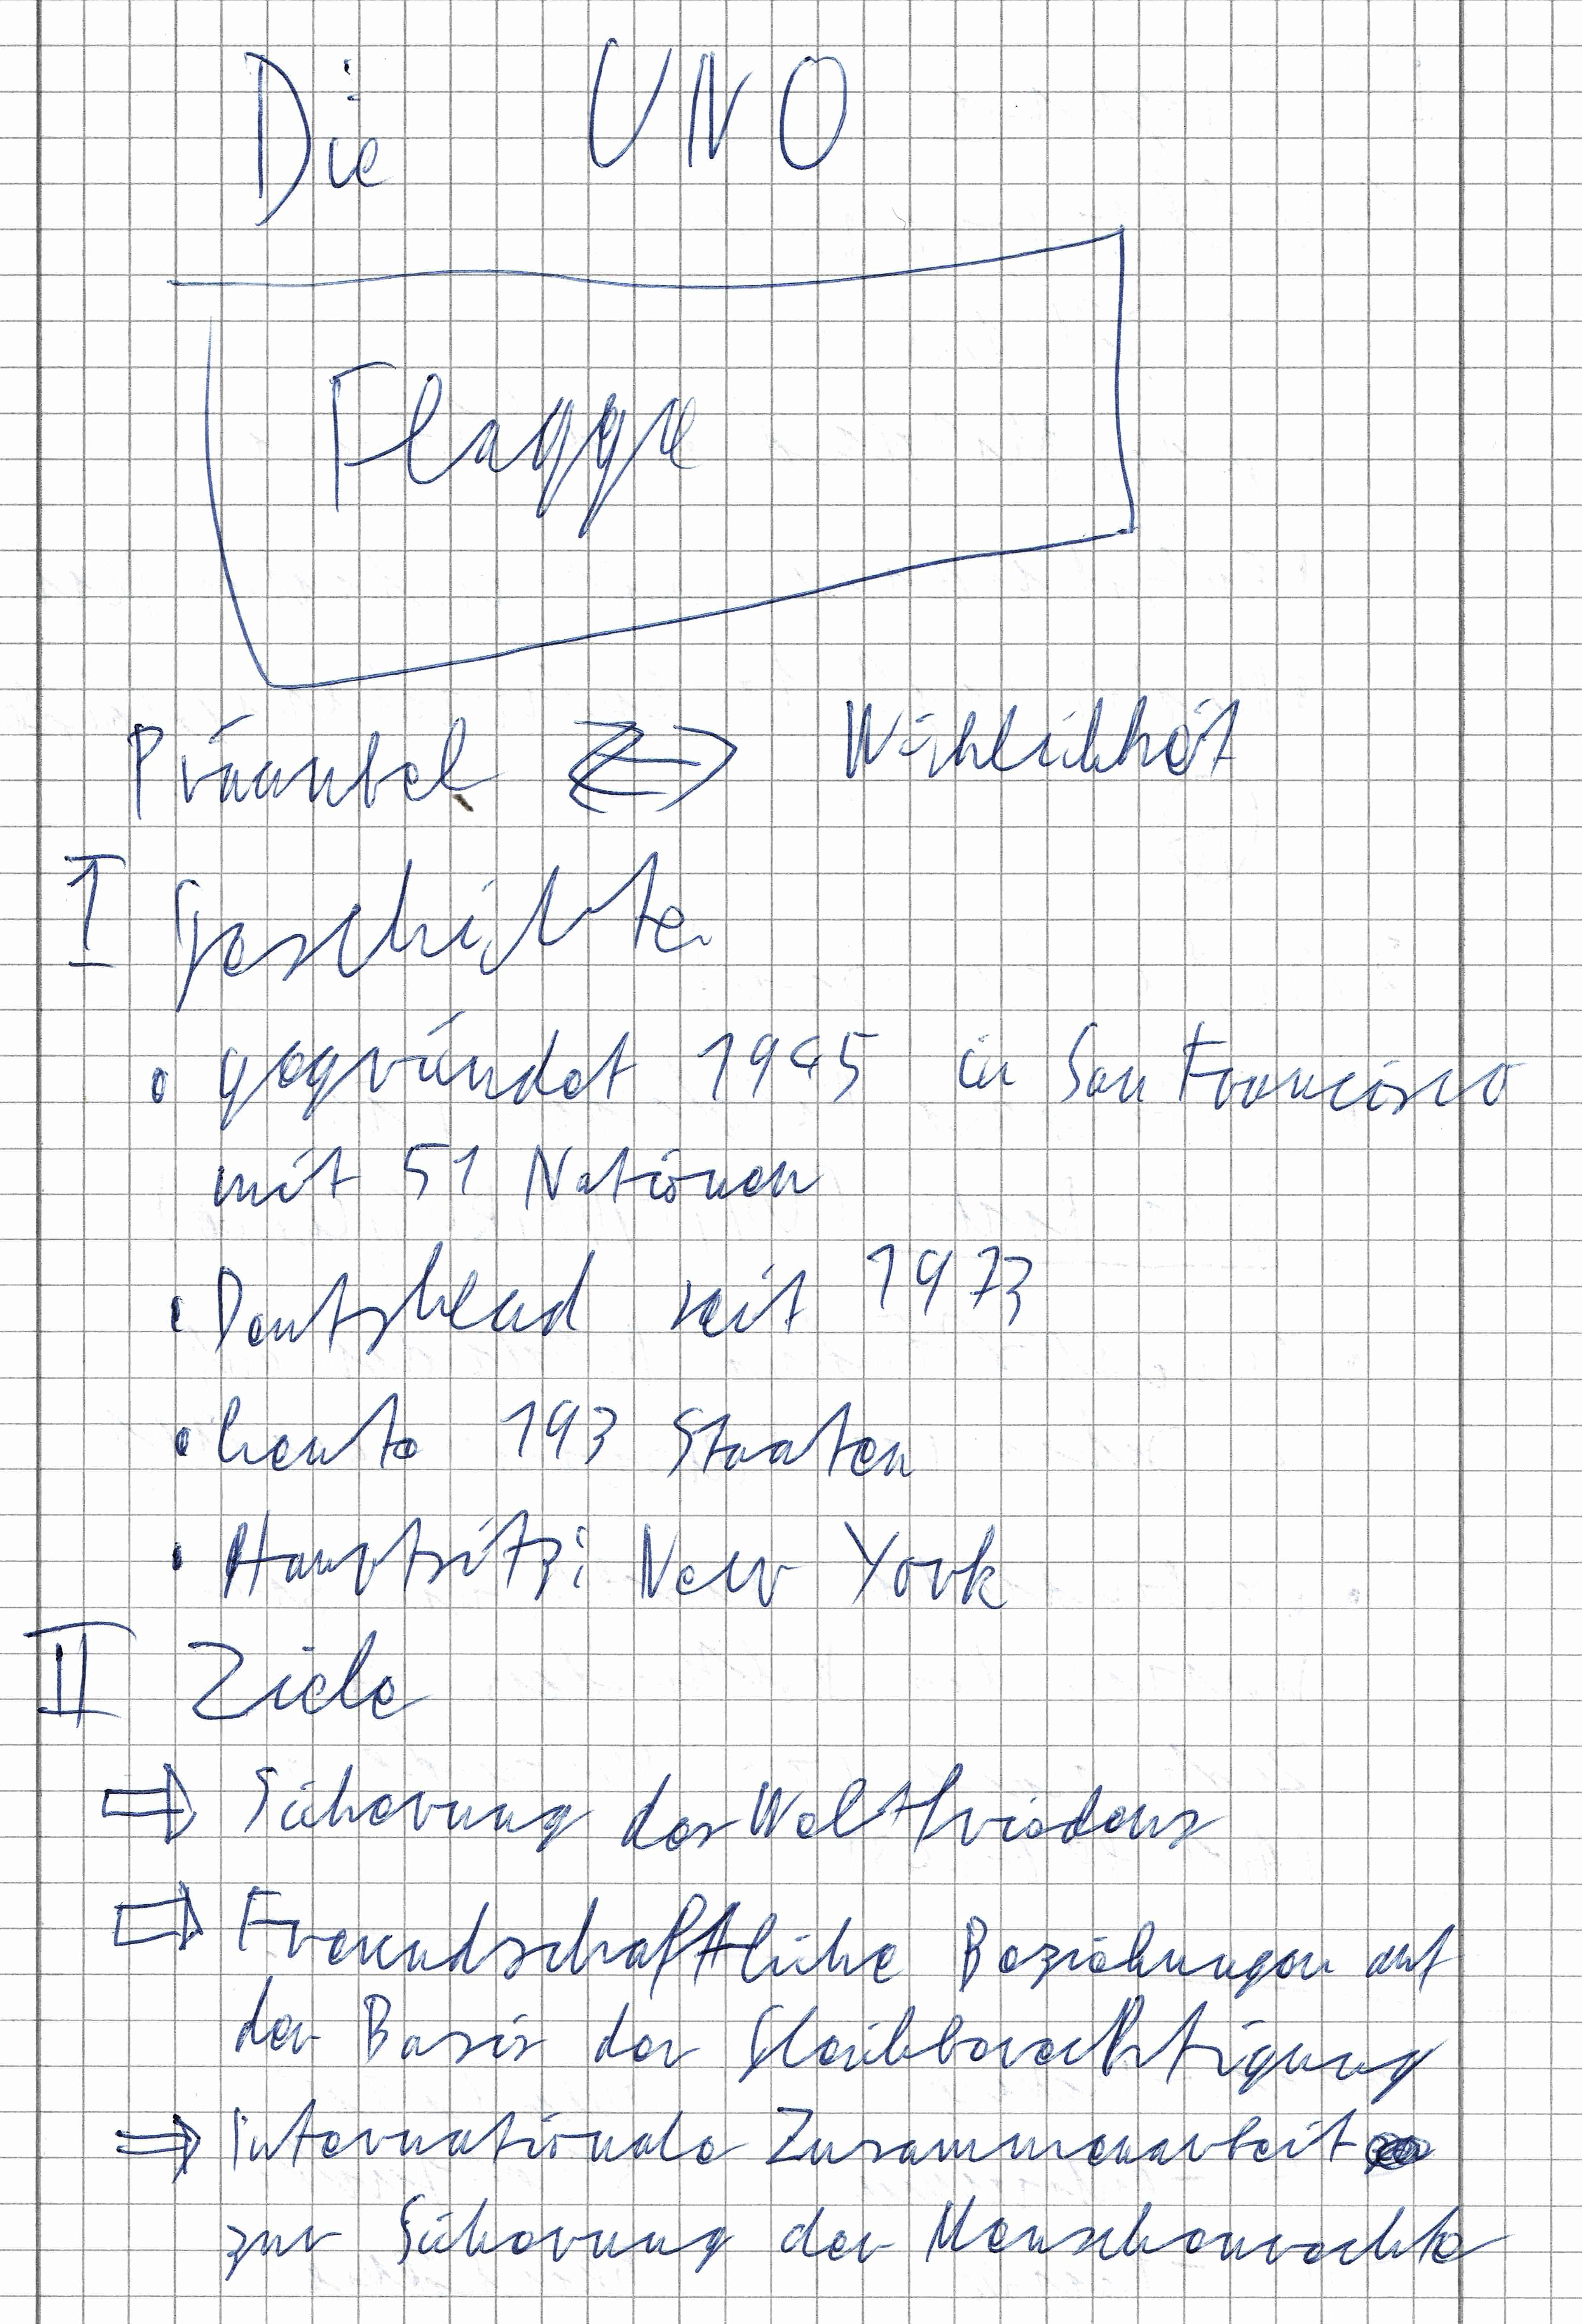 Die UNO
Flagge
Präambel ⇔ Wirklichkeit
I Geschichte
• gegründet 1945 in San Francisco
mit 51 Nationen
• Deutschland seit 1973
• heute 193 Staaten
• Hauptsitz: New York
II Ziele
⇒ Sicherung des Weltfriedens
⇒ Freundschaftliche Beziehungen auf
der Basis der Gleichberechtigung
⇒ Internationale Zusammenarbeit
zur Sicherung der Menschenrechte